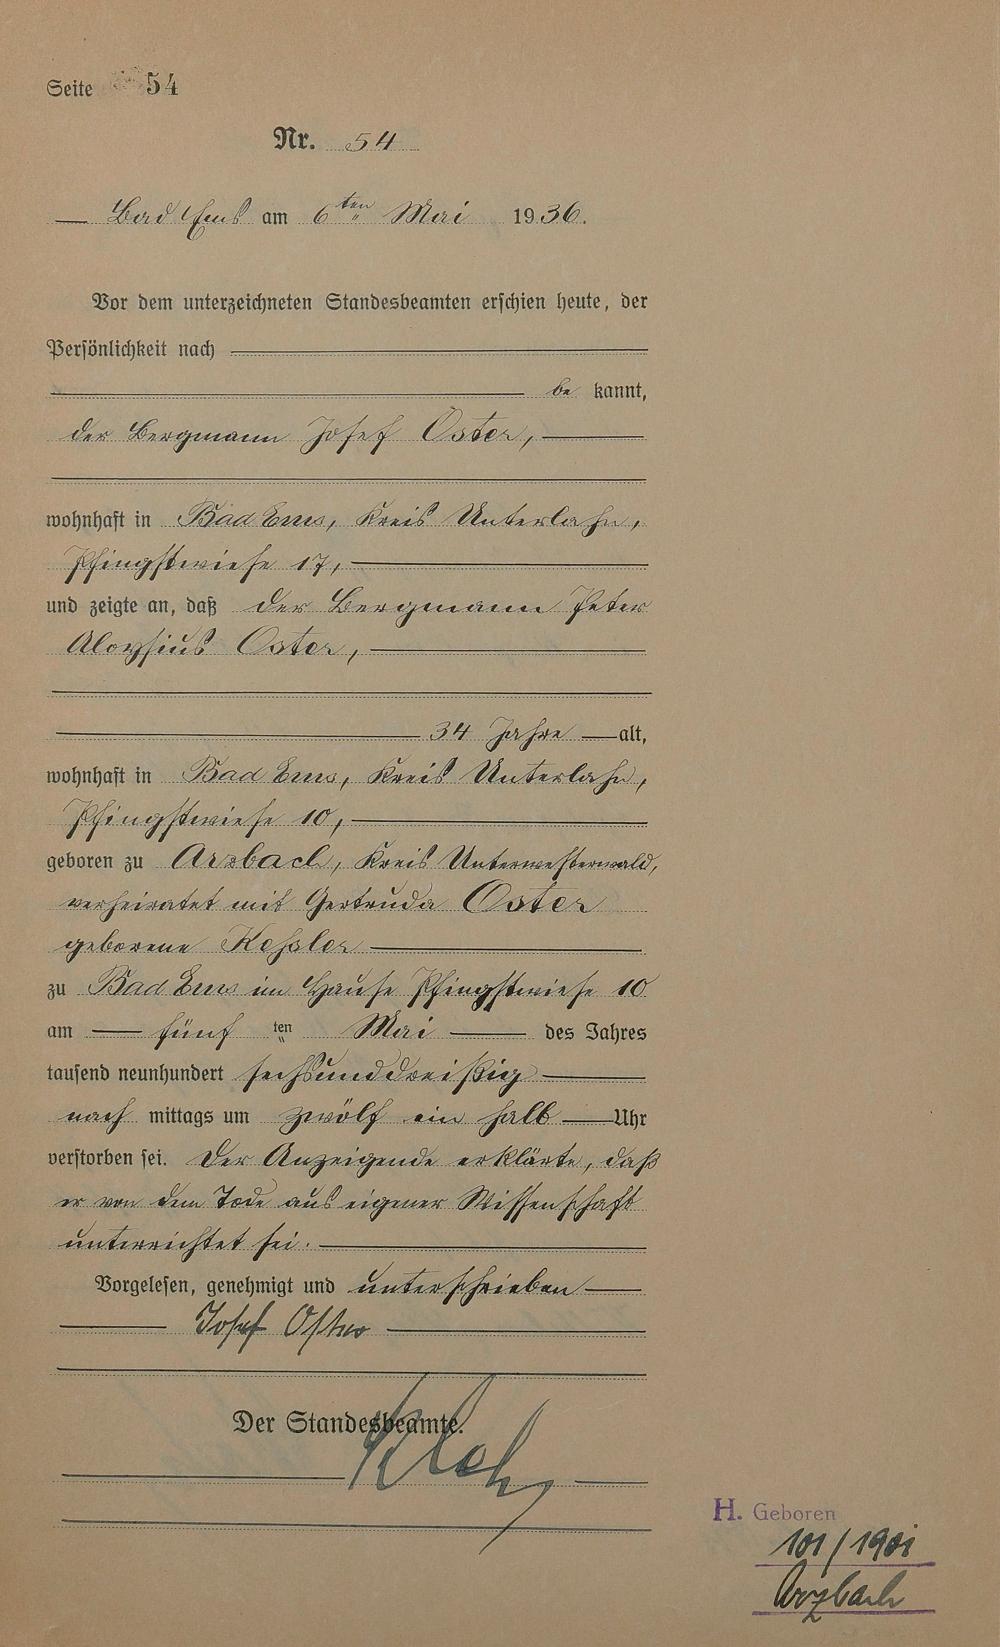 Seite 54
Nr. 54
Bad Ems am 6ten Mai 1936.
Vor dem unterzeichneten Standesbeamten erschien heute, der
Persönlichkeit nach
be kannt,
der Bergmann Josef Oster,
wohnhaft in Bad Ems, Kreis Unterlahn,
Pfingstwiese 17,
und zeigte an, daß der Bergmann Peter
Aloysius Oster,
34 Jahre alt,
wohnhaft in Bad Ems, Kreis Unterlahn,
Pfingstwiese 10,
geboren zu Arzbach, Kreis Unterwesterwald,
verheiratet mit Gertruda Oster
geborene Kessler
zu Bad Ems im Hause Pfingstwiese 10
am fünf ten Mai des Jahres
tausend neunhundert sechsunddreißig
nach mittags um zwölf ein halb Uhr
verstorben sei. Der Anzeigende erklärte, daß
er von dem Tode aus eigener Wissenschaft
unterrichtet sei.
Vorgelesen, genehmigt und unterschrieben
Josef Oster
Der Standesbeamte.
H. Geboren
101/1901
Arzbach